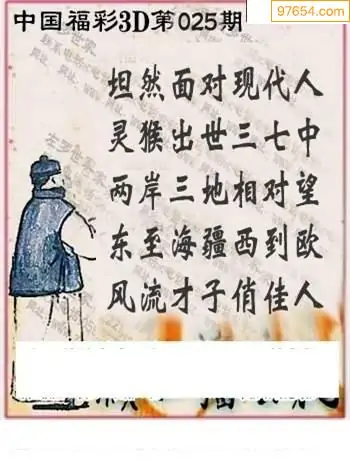 97654.com
中国福彩3D第025期
坦然面对现代人
灵猴出世三七中
两岸三地相对望
东至海疆西到欧
风流才子俏佳人